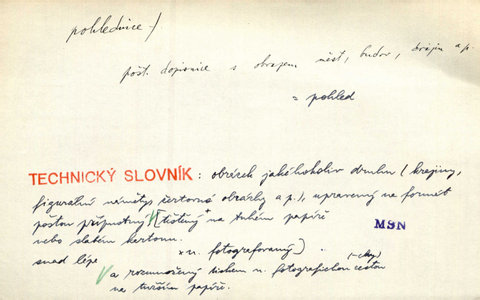 pohlednice /
pošt. dopisnice s obrazem měst, budov, krajin a p.
= pohled
TECHNICKÝ SLOVNÍK : obrázek jakéhokoliv druhu (krajiny,
figurální náměty žertovné obrázky a p.), upravený na formát
poštou přípustný V [tištěný + na tuhém papíře MSN
nebo slabém kartonu.
× n. fotografovaný] .
snad lépe
V a rozmnožený tiskem n. fotografickou cestou (-cky)
na tužším papíře.